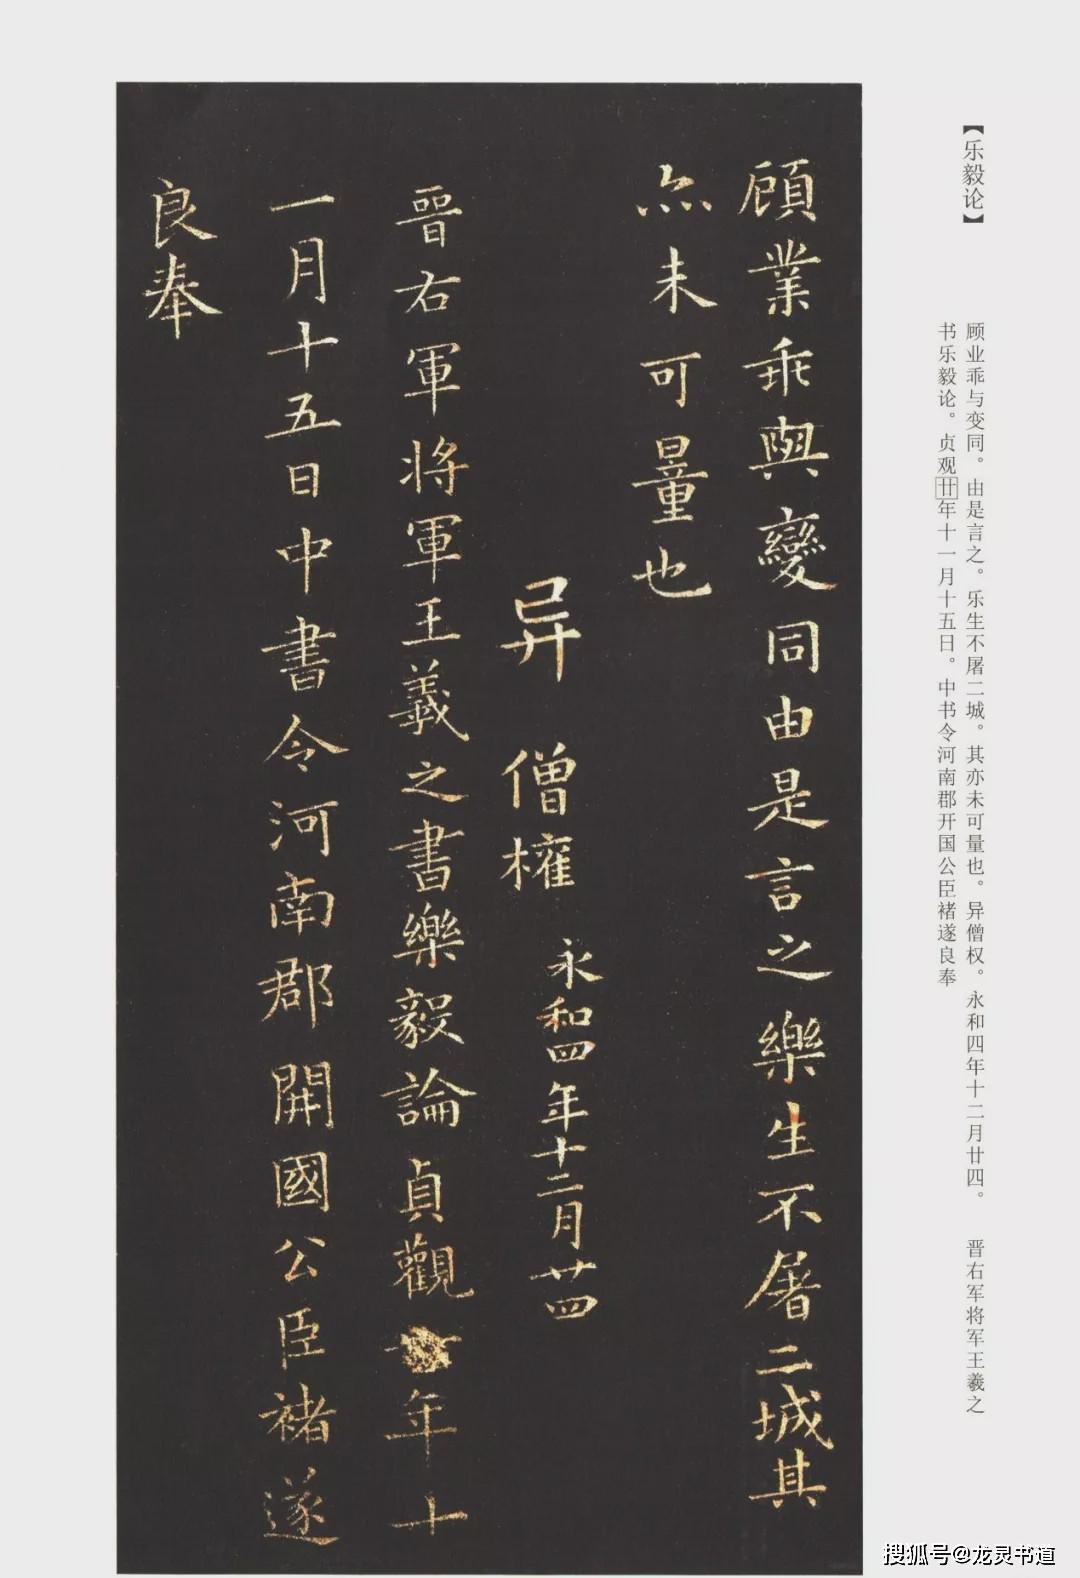 【乐毅论】
顾业乖与变同。由是言之。乐生不屠二城。其亦未可量也。异僧权。永和四年十二月廿四。 晋右军将军王羲之
书乐毅论。贞观廿年十一月十五日。中书令河南郡开国公臣褚遂良奉
顧業乖與變同由是言之樂生不屠二城其
亦未可量也
异 僧權 永和四年十二月廿四
晉右軍将軍王羲之書樂毅論貞觀年十
一月十五日中書令河南郡開國公臣褚遂
良奉
搜狐号@龙灵书道